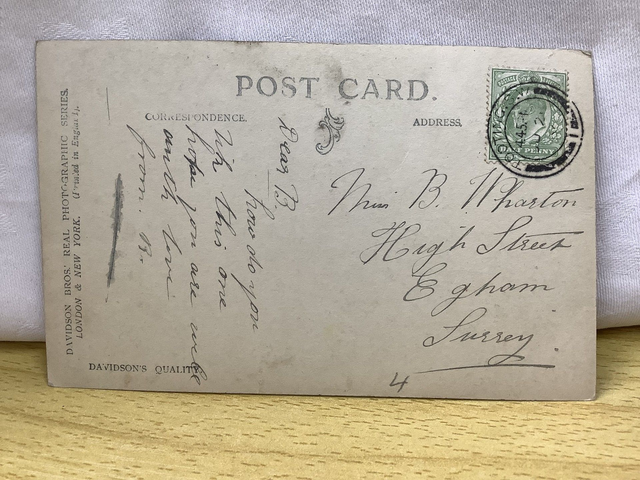 POST CARD.
CORRESPONDENCE.
ADDRESS.
Dear B.
how do you
like this one
hope you are well
with love
from. B.
Miss B. Wharton
High Street
Egham
Surrey
4
DAVIDSON BROS.' REAL PHOTOGRAPHIC SERIES.
LONDON & NEW YORK. (Printed in England).
DAVIDSON'S QUALITY.